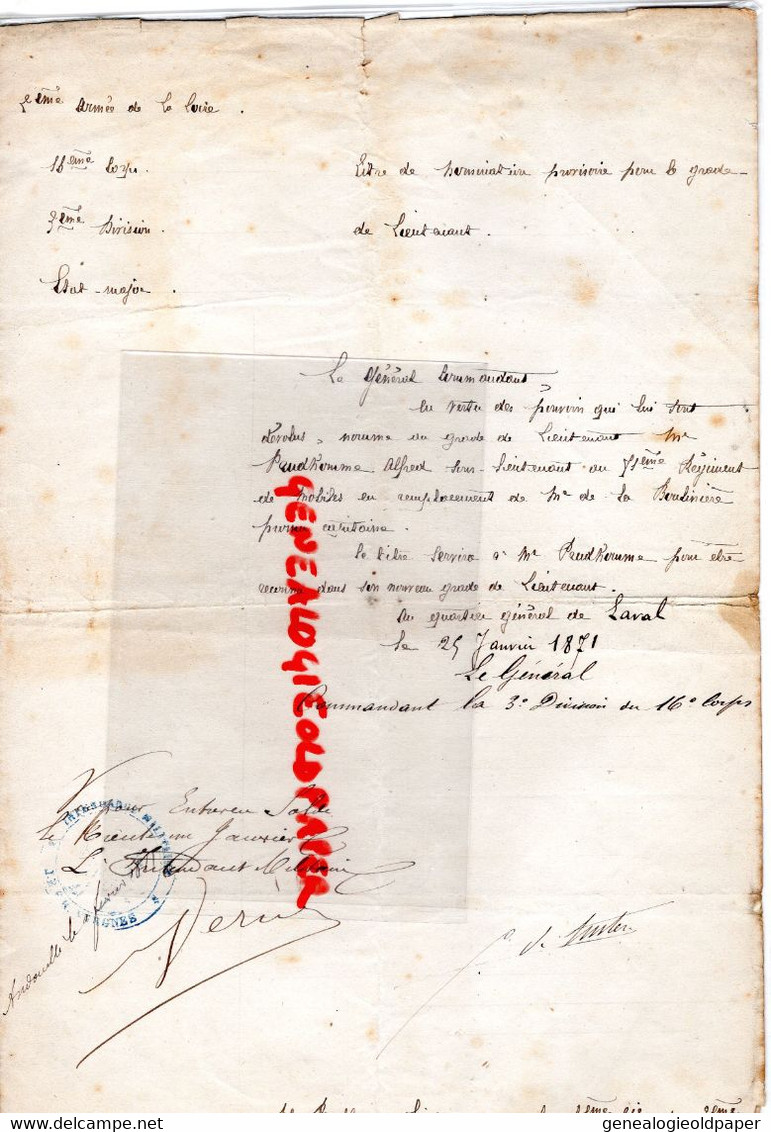 2ème Armée de la Loire.
16ème Corps.
3ème Division.
Etat-major.
Titre de nomination provisoire pour le grade
de Lieutenant.
Le Général Commandant
En vertu des pouvoirs qui lui sont
dévolus, nomme au grade de Lieutenant Mr
Prudhomme Alfred sous-lieutenant au 75ème Régiment
de Mobiles en remplacement de Mr de La Boulinière
promu capitaine.
Le titre servira à Mr Prudhomme pour être
reconnu dans son nouveau grade de Lieutenant.
Au quartier général de Laval
le 25 Janvier 1871
Le Général
Commandant la 3e Division du 16e Corps
GENEALOGIEOLDPAPER
Vu pour Entrer en Solde
le trente un Janvier
L'Intendant Militaire
INTENDANCE MILITAIRE
Andouillé le février
delcampe.net
genealogieoldpaper